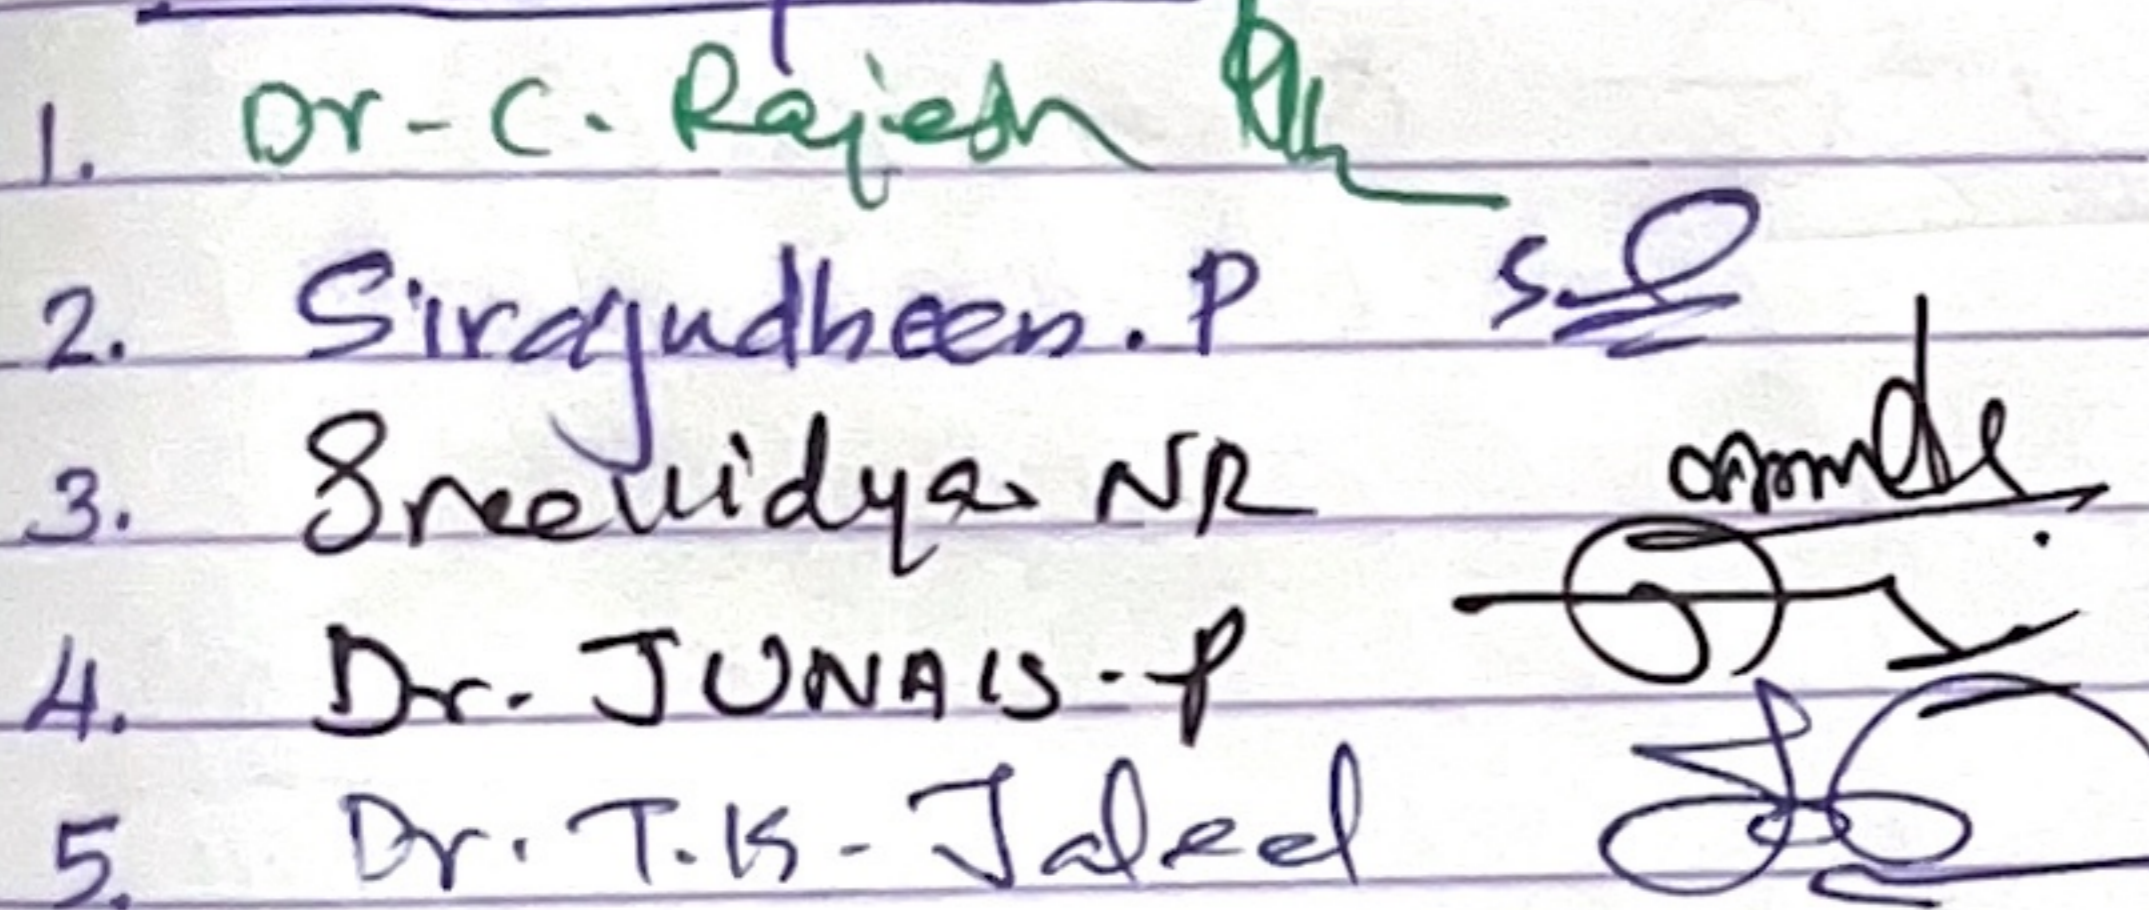 1. Dr. C. Rajesh
2. Sirajudheen. P
3. Sreevidya NR
4. Dr. JUNAIS. P
5. Dr. T.K. Jaleel